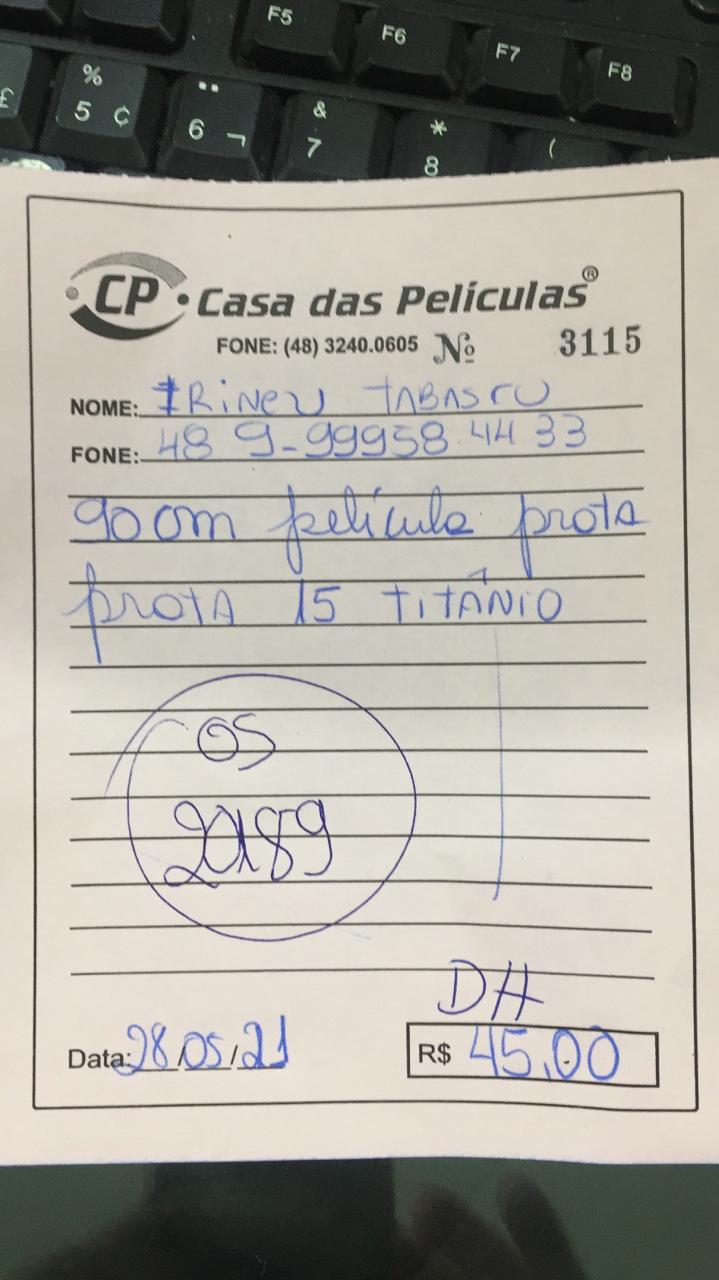 F5 F6 F7 F8
£ % 5 ¢ ¨ 6 ¬ & 7 * 8 (
CP • Casa das Películas®
FONE: (48) 3240.0605 Nº 3115
NOME: IRINEU
FONE: 48 9-99958.44 33
90 cm película prota
prota 15 TITÂNIO
OS
20189
DH
Data: 28/05/21 R$ 45,00